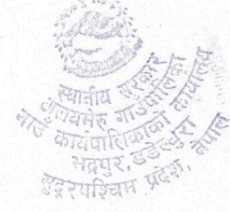 स्थानीय सरकार
आलिताल गाउँपालिका
गाउँ कार्यपालिकाको कार्यालय
भद्रपुर, डडेल्धुरा
सुदूरपश्चिम प्रदेश, नेपाल